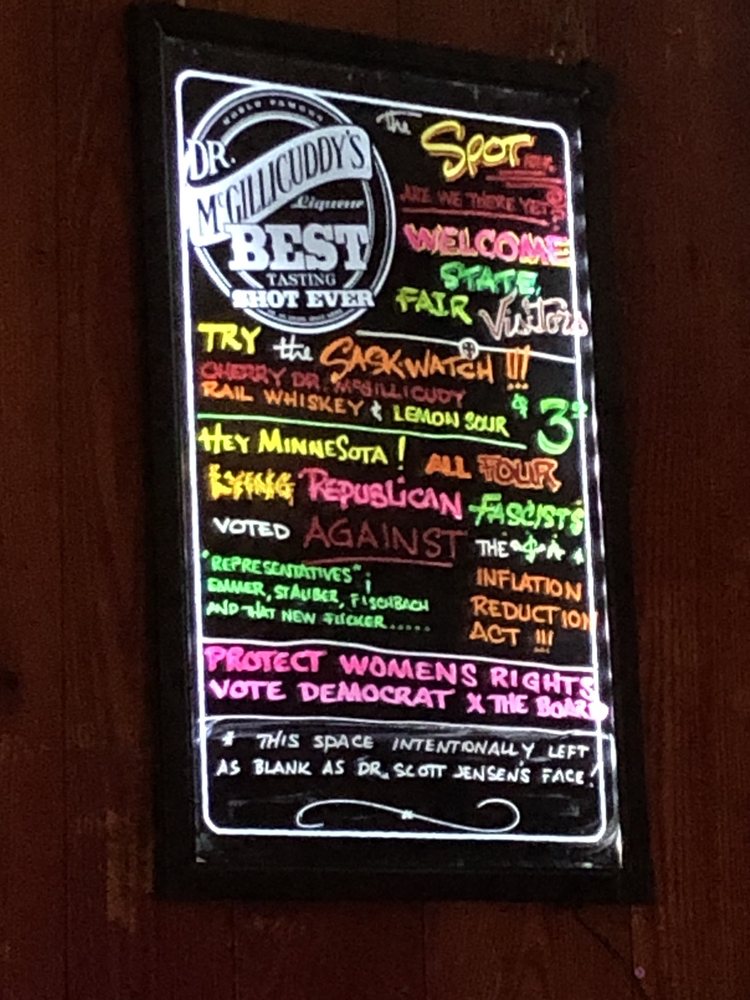 WORLD FAMOUS
DR.
McGILLICUDDY'S
Liqueur
BEST
TASTING
SHOT EVER
The SPOT
ARE WE THERE YET
WELCOME
STATE
FAIR VISITORS
TRY the SASKWATCH !!!
CHERRY DR. McGILLICUDY
RAIL WHISKEY & LEMON SOUR $3
HEY MINNESOTA! ALL FOUR
LYING REPUBLICAN FASCISTS
VOTED AGAINST THE
INFLATION
REDUCTION
ACT !!!
"REPRESENTATIVES";
EMMER, STAUBER, FISCHBACH
AND THAT NEW FUCKER.....
PROTECT WOMENS RIGHTS
VOTE DEMOCRAT X THE BOARD
* THIS SPACE INTENTIONALLY LEFT
AS BLANK AS DR. SCOTT JENSEN'S FACE!